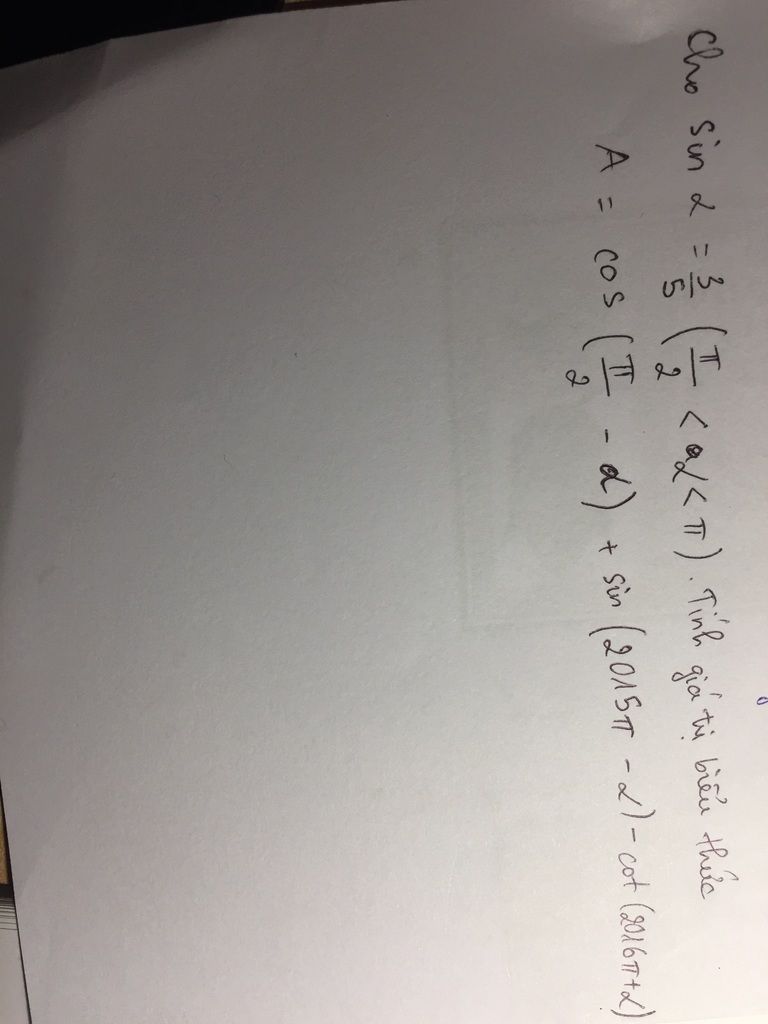 Cho sin α = 3/5 (π/2 < α < π). Tính giá trị biểu thức
A = cos (π/2 - α) + sin (2015π - α) - cot (2016π + α)